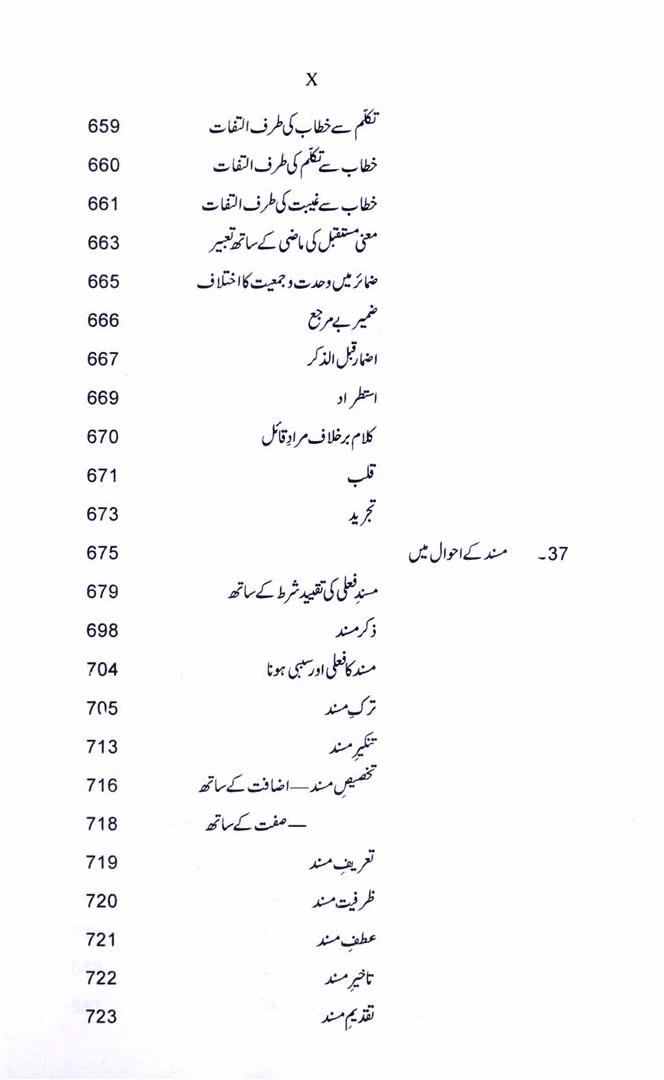 X
تکلّم سے خطاب کی طرف التفات 659
خطاب سے تکلّم کی طرف التفات 660
خطاب سے غیبت کی طرف التفات 661
معنی مستقبل کی ماضی کے ساتھ تعبیر 663
ضمائر میں وحدت و جمعیت کا اختلاف 665
ضمیر بے مرجع 666
اضمار قبل الذکر 667
استطراد 669
کلام برخلاف مرادِ قائل 670
قلب 671
تجرید 673
37۔ مسند کے احوال میں 675
مسندِ فعلی کی تقیید شرط کے ساتھ 679
ذکر مسند 698
مسند کا فعلی اور سببی ہونا 704
ترکِ مسند 705
تنکیرِ مسند 713
تخصیصِ مسند — اضافت کے ساتھ 716
— صفت کے ساتھ 718
تعریفِ مسند 719
ظرفیت مسند 720
عطفِ مسند 721
تاخیرِ مسند 722
تقدیمِ مسند 723